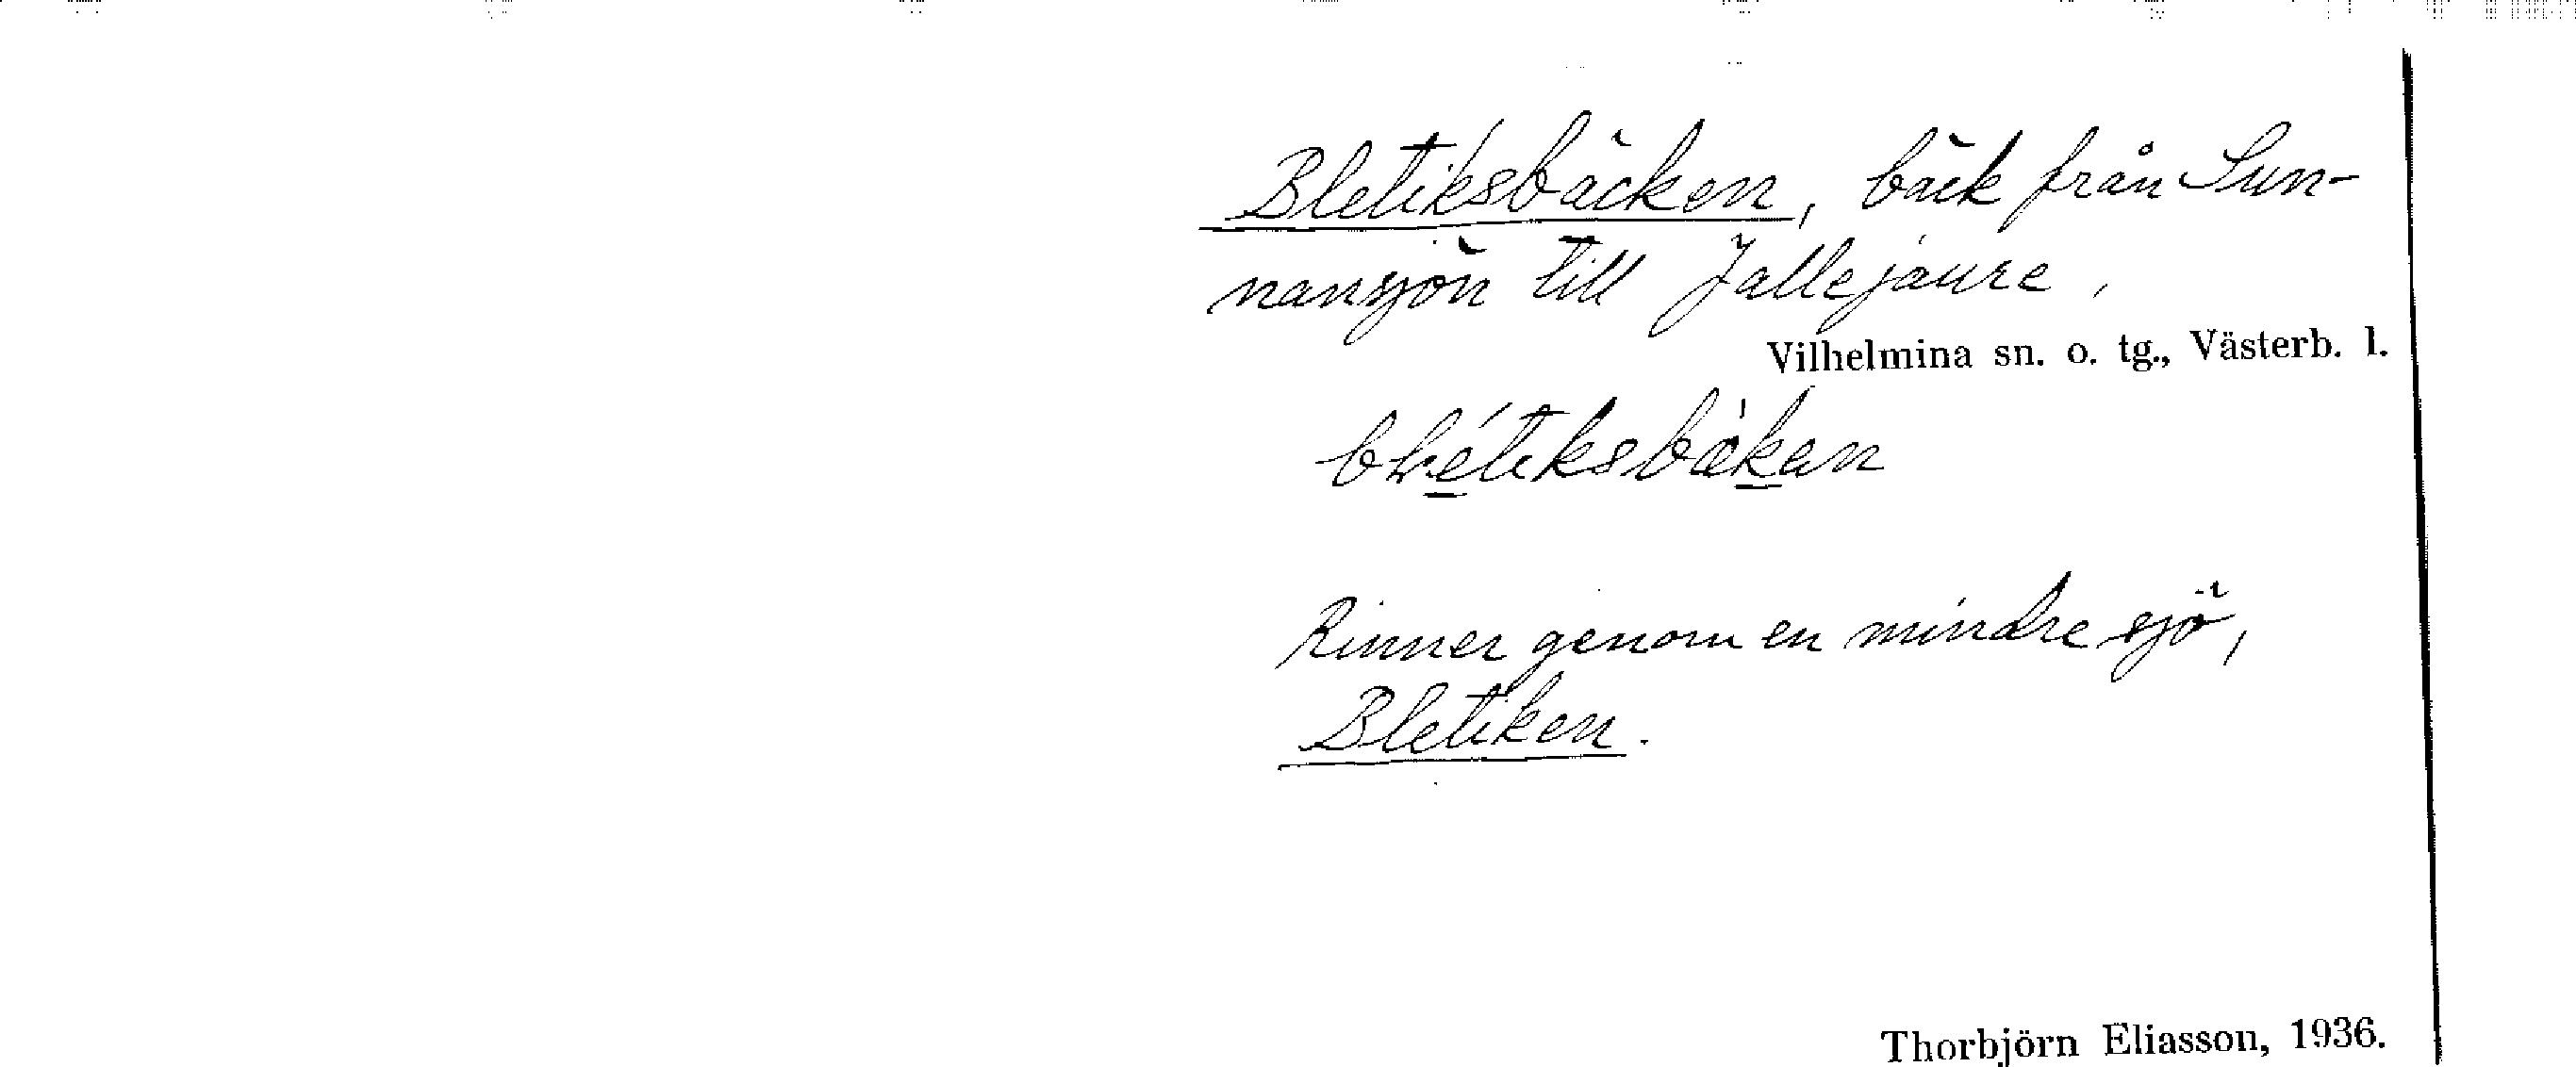 Bletiksbäcken, bäck från Sun-
nansjön till Jallejaure,
Vilhelmina sn. o. tg., Västerb. l.
Rinner genom en mindre sjö,
Bletiken.
Thorbjörn Eliasson, 1936.